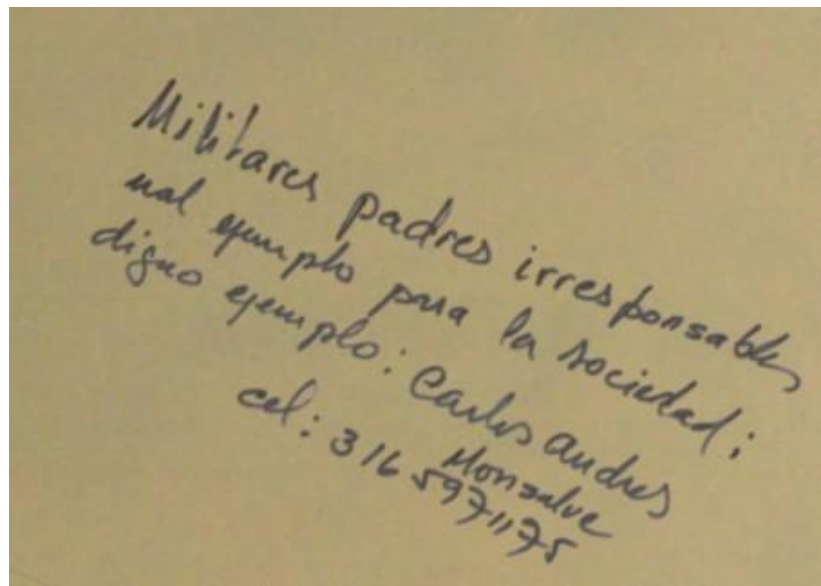 Militares padres irresponsables
mal ejemplo para la sociedad;
digno ejemplo: Carlos Andres
Monsalve
cel: 316 5971175